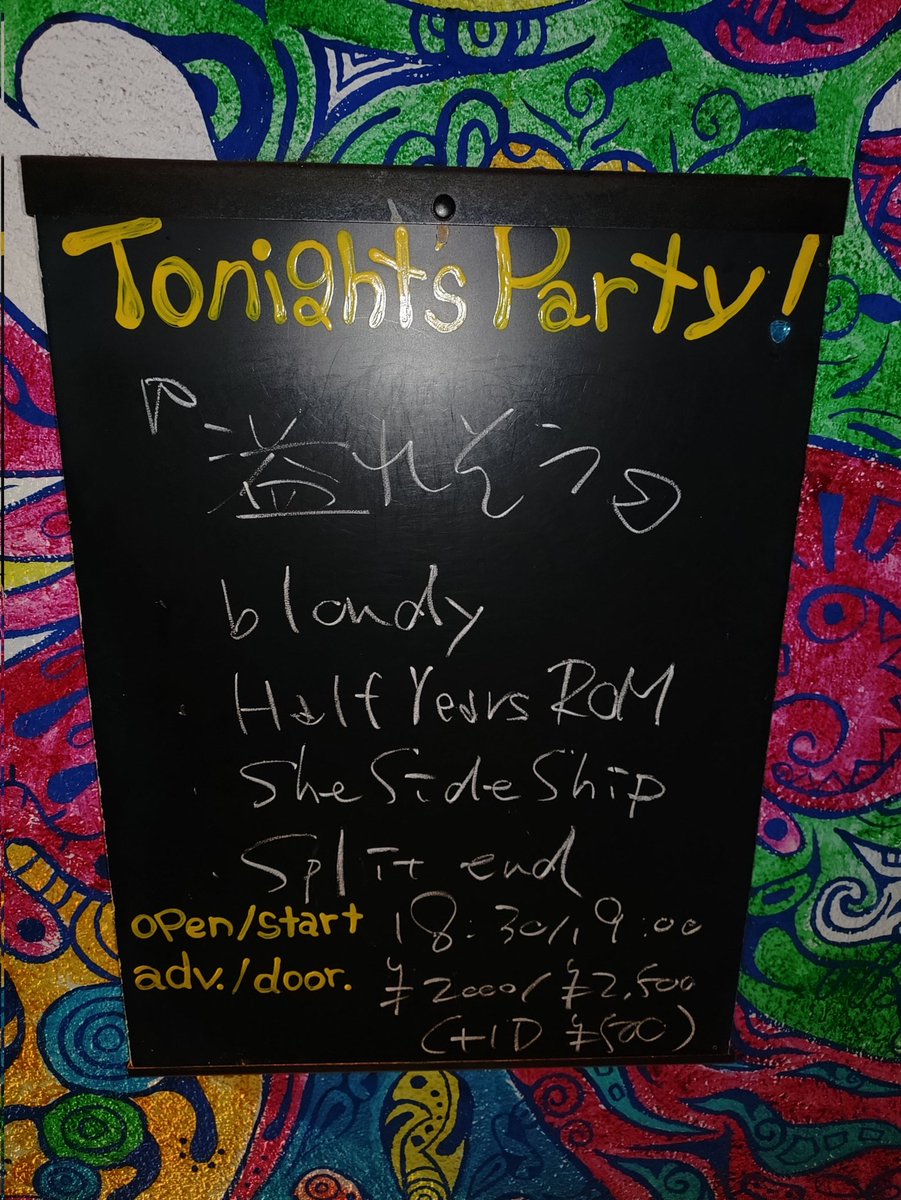 Tonight's Party!
『溢れそう』
blondy
Half Years ROM
SheSideShip
Split end
open/start 18:30/19:00
adv./door. ¥2000/¥2,500
(+1D ¥500)